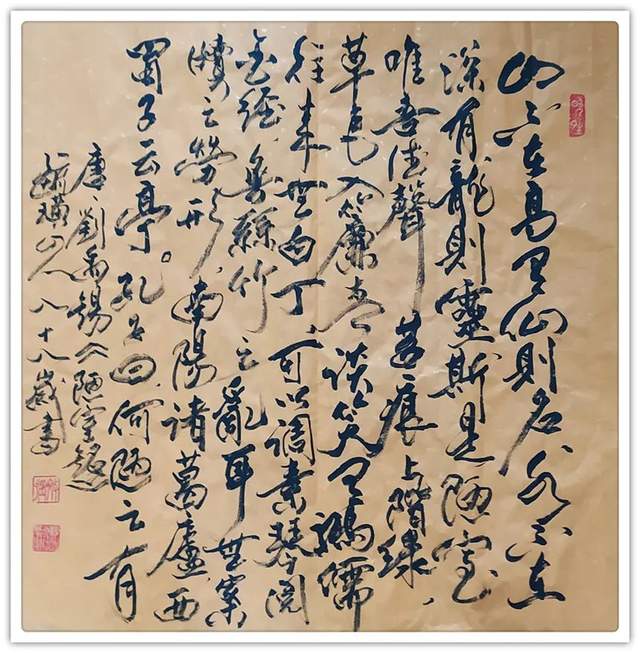 山不在高有仙則名水不在
深有龍則靈斯是陋室
唯吾德聲苔痕上階綠
草色入簾青談笑有鴻儒
往来無白丁可以調素琴閱
金經無絲竹之亂耳無案
牘之勞形南陽諸葛廬西
蜀子云亭。孔子曰何陋之有
唐劉禹錫公陋室銘
璜山人八十八歲書